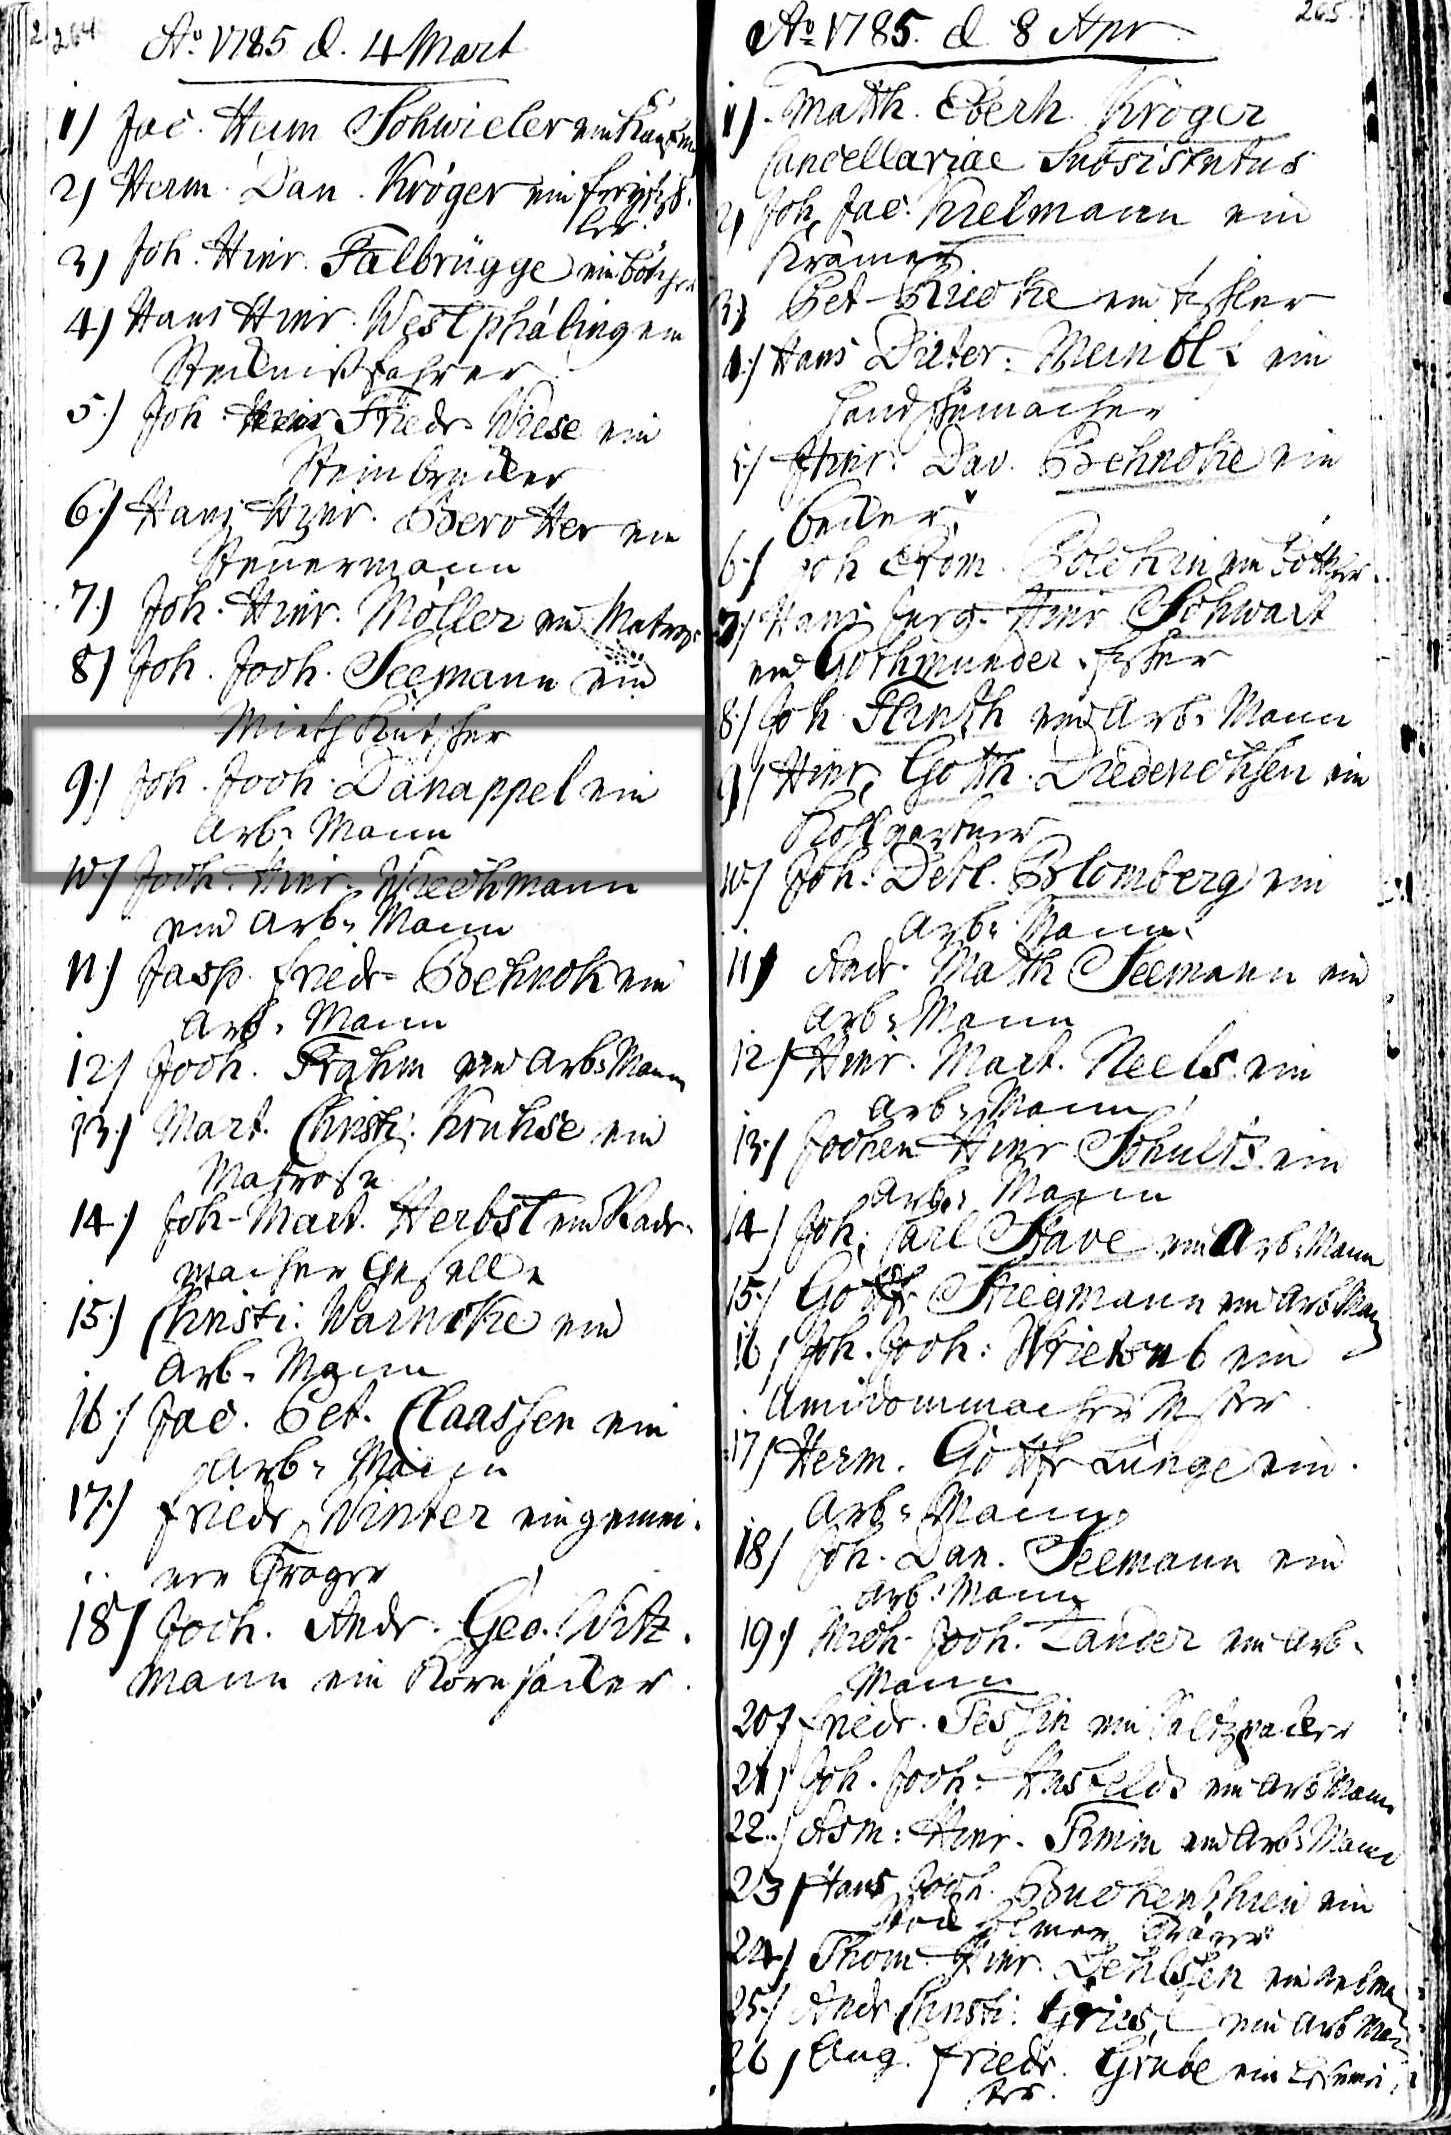 264
Ao 1785 d. 4 Mart
1) Jac. Hinr Schwieler ein
2) Herm. Dan. Kröger ein
3) Joh. Hinr. Falbrügge ein
4) Hans Hinr. Westphäling ein
Stecknißfahrer
5.) Joh. Friedr. Wiese ein
Steinbrücker
6.) Hans Hinr. ein
Steuermann
7.) Joh. Hinr. Möller ein Matros
8) Joh. Joch. Seemann ein
Mieth Kutscher
9.) Joh. Joch. Danappel ein
Arb. Mann
10.) Joch. Hinr. Wiechmann
ein Arb. Mann
11.) Jasp. Friedr. Behnck ein
Arb. Mann
12.) Joch. Frahm ein Arb. Mann
13.) Mart. Christi. Kruhse ein
Matrose
14.) Joh. Mart. Herbst ein Rade-
macher Geselle
15.) Christi: Warncke ein
Arb. Mann
16.) Jac. Pet. Claassen ein
Arb. Mann
17.) Friedr. Winter ein gemei-
ner Träger
18) Joch. Andr. Geo. Witz-
mann ein Kornsacker.
265.
Ao 1785. d 8 Apr
1). Math. Eberh. Kröger
Cancellariae Substitutus
2) Joh. Jac. Kielmann ein
Krämer
3.) Pet. ein Tischler
4.) Hans Dieter. ein
Handschumacher
5.) Hinr. Dav. Behncke ein
Becker
6.) Joh. ein
7) Hans Jürg. Hinr. Schwart
ein Gothmunder Fischer
8.) Joh. ein Arb. Mann
9.) Hinr. Goth. Diederichsen ein
Kohlgärtner
10.) Joh. Detl. Blomberg ein
Arb. Mann
11) Andr. Math Seemann ein
Arb. Mann
12) Hinr. Mart. Neels ein
Arb. Mann
13.) Jochen Hinr Schultz ein
Arb. Mann
14) Joh. Carl Stave ein Arb. Mann
15.) Gottfr. Stiegmann ein Arb Man
16) Joh. Joch. ein
Amidommacher
17) Herm. Gottfr Lunge ein
Arb. Mann
18) Joh. Dan. Seemann ein
Arb. Mann
19.) Mich. Joch. Zander ein Arb.
Mann
20) Friedr. Tessin ein Saltzpacker
21) Joh. Joch. ein Arb Mann
22.) Asm: Hinr. Timm ein Arb. Mann
23) Hans Joch. ein
Träger
24) Thom. Hinr. ein
25.) Andr Christi: ein Arb Man
26) Aug. Friedr. Grube ein